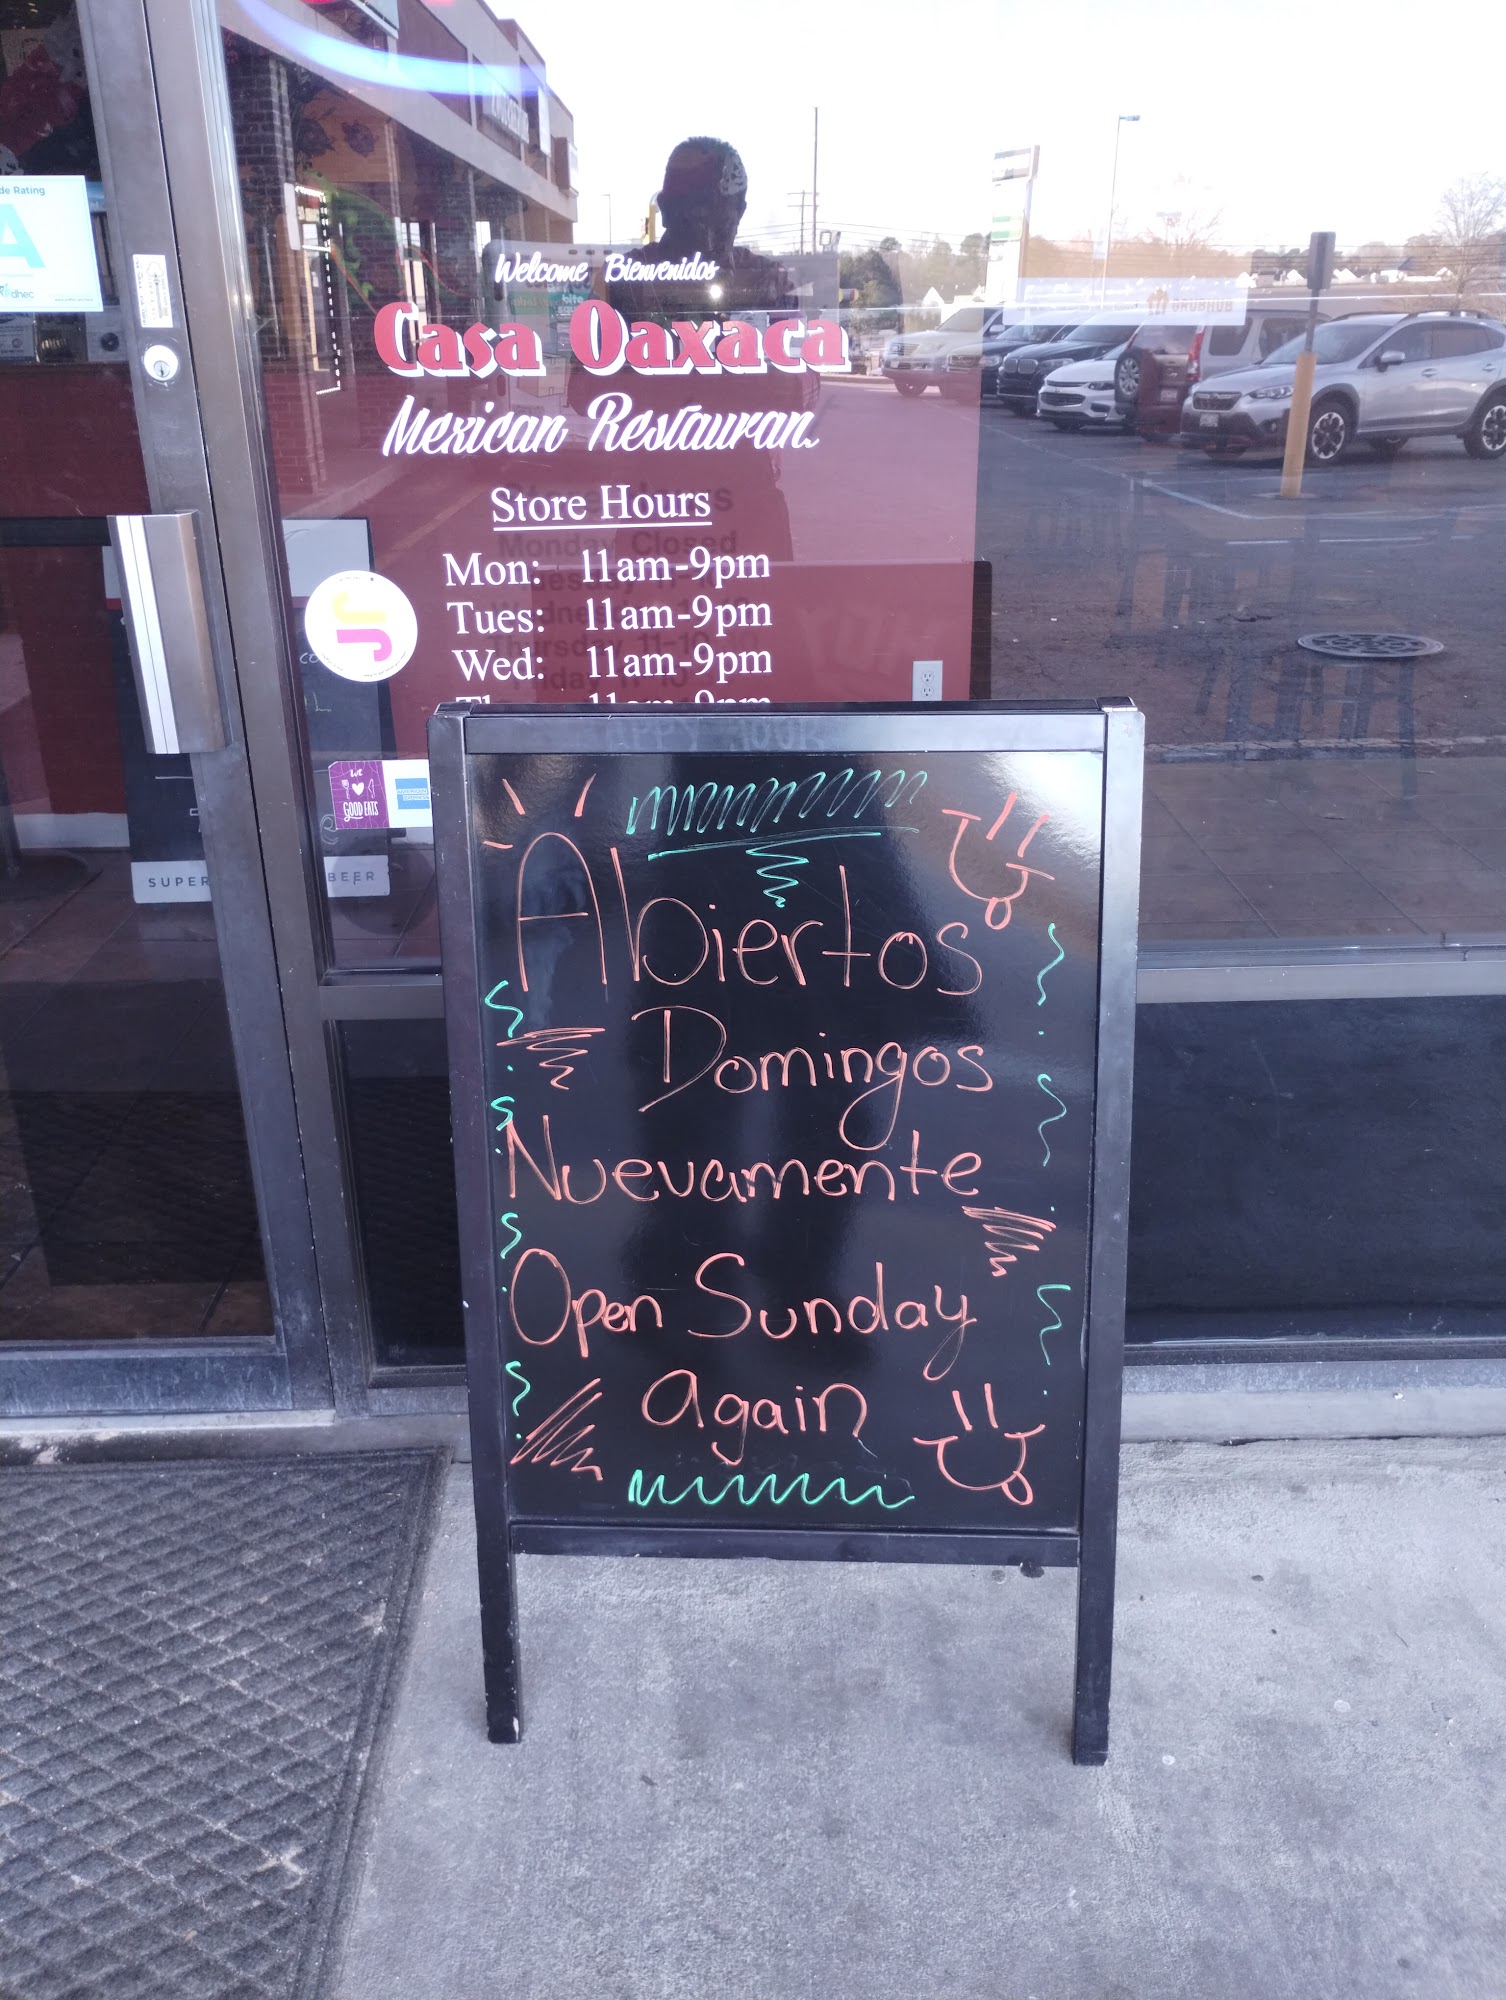 de Rating
A
dhec
Welcome Bienvenidos
Casa Oaxaca
Mexican Restauran
Store Hours
Mon: 11am-9pm
Tues: 11am-9pm
Wed: 11am-9pm
we
GOOD EATS
SUPER
BEER
Abiertos
Domingos
Nuevamente
Open Sunday
again